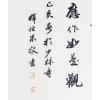 應作如是觀
己亥於少林寺
釋敬書